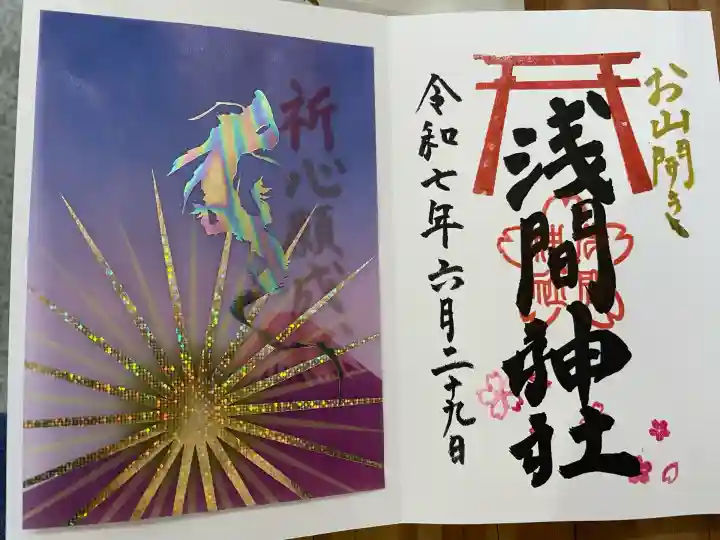 お山開き
浅間神社
令和七年六月二十九日
祈心願成